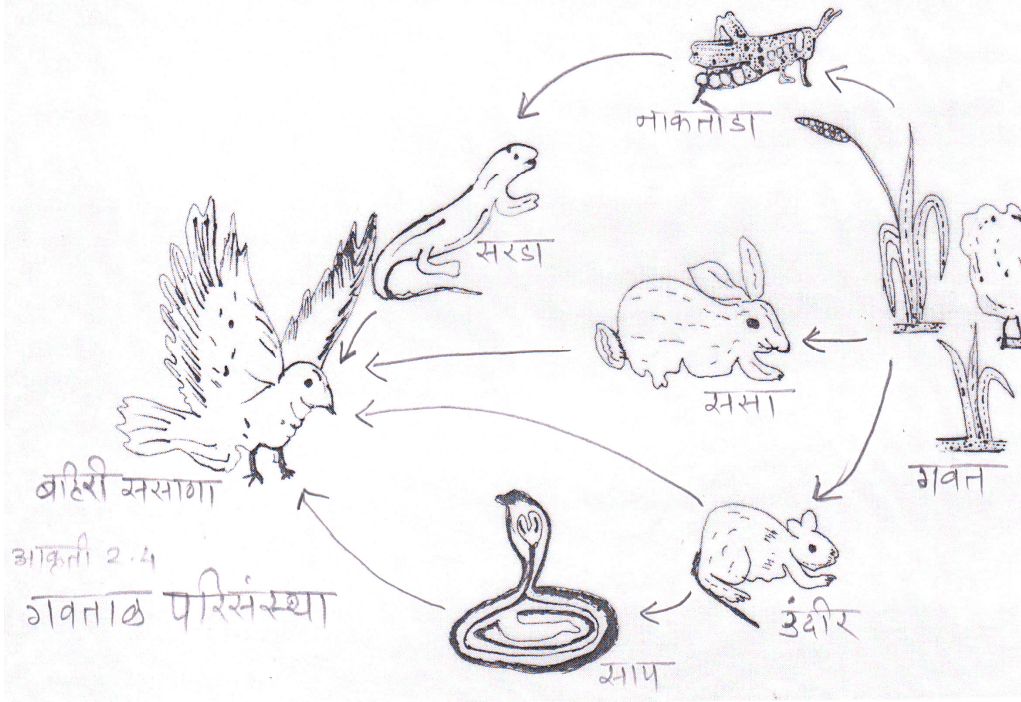 नाकतोडा
सरडा
ससा
गवत
बहिरी ससाणा
उंदीर
साप
आकृती २.४
गवताळ परिसंस्था